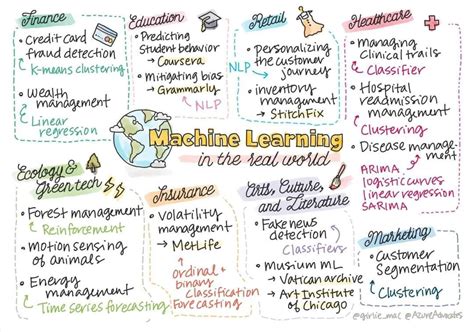 Finance
• Credit card
fraud detection
K-means clustering
• Wealth
management
Linear
regression
Education
• Predicting
Student behavior
→ Coursera
• mitigating bias
→ Grammarly
NLP
Retail
• personalizing
the customer
journey
NLP
• inventory
management
→ StitchFix
Healthcare
• managing
clinical trails
Classifier
• Hospital
readmission
management
Clustering
• Disease management
ARIMA
logistic curves
linear regression
SARIMA
Machine Learning
in the real world
Ecology &
Green tech
• Forest management
Reinforcement
• Motion sensing
of animals
• Energy
management
Time series forecasting
Insurance
• Volatility
management
→ MetLife
ordinal +
binary
classification
Forecasting
Arts, Culture,
and Literature
• Fake news
detection
Classifiers
• Musium ML
→ Vatican archive
→ Art Institute
of Chicago
Marketing
• Customer
Segmentation
Clustering
@girlie_mac @AzureAdvocates